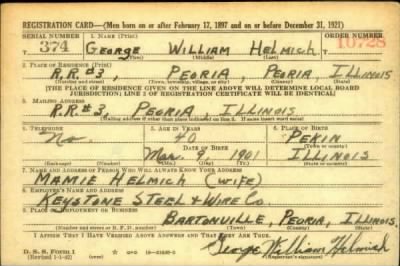 REGISTRATION CARD—(Men born on or after February 17, 1897 and on or before December 31, 1921)
SERIAL NUMBER 1. NAME (Print) ORDER NUMBER
374 George William Helmich 10728
(First) (Middle) (Last)
2. PLACE OF RESIDENCE (Print)
R.R.#3, PEORIA, PEORIA, ILLINOIS
(Number and street) (Town, township, village, or city) (County) (State)
[THE PLACE OF RESIDENCE GIVEN ON THE LINE ABOVE WILL DETERMINE LOCAL BOARD
JURISDICTION; LINE 2 OF REGISTRATION CERTIFICATE WILL BE IDENTICAL]
3. MAILING ADDRESS
R.R.#3, PEORIA ILLINOIS
[Mailing address if other than place indicated on line 2. If same insert word same]
4. TELEPHONE 5. AGE IN YEARS 6. PLACE OF BIRTH
No. 40 PEKIN
DATE OF BIRTH (Town or county)
Mar. 9 1901 ILLINOIS
(Exchange) (Number) (Mo.) (Day) (Yr.) (State or country)
7. NAME AND ADDRESS OF PERSON WHO WILL ALWAYS KNOW YOUR ADDRESS
MAMIE HELMICH (WIFE)
8. EMPLOYER'S NAME AND ADDRESS
KEYSTONE STEEL & WIRE CO.
9. PLACE OF EMPLOYMENT OR BUSINESS
BARTONVILLE, PEORIA, ILLINOIS.
(Number and street or R. F. D. number) (Town) (County) (State)
I AFFIRM THAT I HAVE VERIFIED ABOVE ANSWERS AND THAT THEY ARE TRUE.
D. S. S. Form 1 George William Helmich
(Revised 1-1-42) (over) (Registrant's signature)